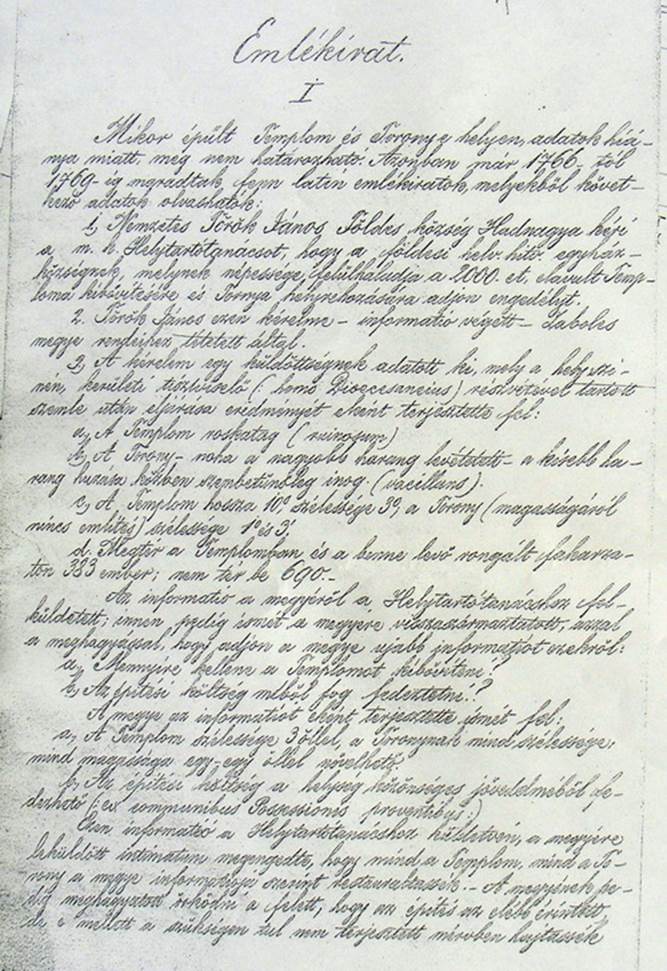 Emlékirat.
I
Mikor épült Templom és Torony e helyen, adatok hiá-
nya miatt, meg nem határozható. Azonban már 1766-tól
1769-ig maradtak fenn latin emlékiratok, melyekből követ-
kező adatok olvashatók:
1, Nemzetes Török János Földes község Hadnagya kéri
a m. k. Helytartótanácsot, hogy a földesi helv. hitv. egyház-
községnek, melynek népessége felülhaladja a 2000. et, elavult Temp-
loma kibővitésére és Tornya helyrehozására adjon engedélyt.
2. Török János ezen kérelme - informatio végett - Szabolcs
megye rendeihez tétetett által.
3, A kérelem egy küldöttségnek adatott ki, mely a hely szi-
nén, kerületi tisztviselő (: homo Dioecesaneus) részvétével tartott
szemle után eljárása eredményét ekként terjesztette fel:
a, A Templom roskatag (ruinosum)
b, A Torony - noha a nagyobb harang levétetett - a kisebb ha-
rang huzása közben szembetünőleg inog. (vacillans)
c, A Templom hossza 10° szélessége 3°, a Torony (magasságáról
nincs emlités) szélessége 1° és 3'
d. Megfér a Templomban és a benne levő rongált fakarza-
ton 333 ember; nem fér be 690.-
Az informatio a megyéről a Helytartótanácshoz fel-
küldetett; innen pedig ismét a megyére visszaszármaztatott, azzal
a meghagyással, hogy adjon a megye ujabb informatiot ezekről:
a, Mennyire kellene a Templomot kibővíteni?
b, Az épitési költség miből fog fedeztetni?
A megye az informatiót ekként terjesztette ismét fel:
a, A Templom szélessége 3 öllel, a Toronynak mind szélessége,
mind magassága egy-egy öllel növelhető.
b, Az épitési költség a helység közönséges jövedelméből fe-
dezhető (: ex communibus Possessionis proventibus :)
Ezen informatió a Helytartótanácshoz küldetvén, a megyére
leküldött intimatum megengedte, hogy mind a Templom, mind a To-
rony a megye informatioja szerint restauráltassék. - A megyének pe-
dig meghagyatott őrködni a felett, hogy az épités az előbb érintett,
de e mellett a szükségen tul nem terjesztett mérvben hajtassék